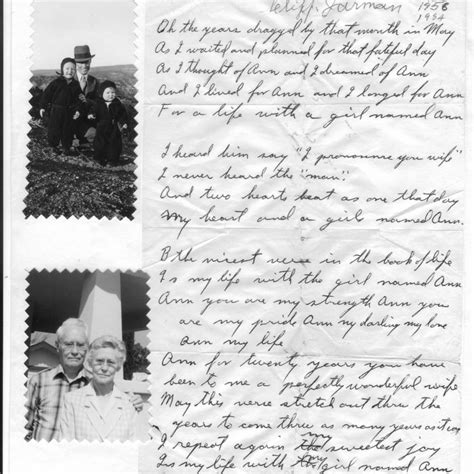 Jarman 1956
1954
Oh the years dragged by that month in May
As I waited and planned for that fateful day
As I thought of Ann and I dreamed of Ann
And I lived for Ann and I longed for Ann
For a life with a girl named Ann
I heard him say "I pronounce you wife"
I never heard the "man"
And two hearts beat as one that day
My heart and a girls named Ann.
O the nicest verse in the book of life
Is my life with the girl named Ann
Ann you are my strength Ann you
are my pride Ann my darling my love
Ann my life
Ann for twenty years you have
been to me a perfectly wonderful wife
May this verse stretch out thru the
years to come thru as many years as
I repeat again my sweetest joy
Is my life with girl named Ann